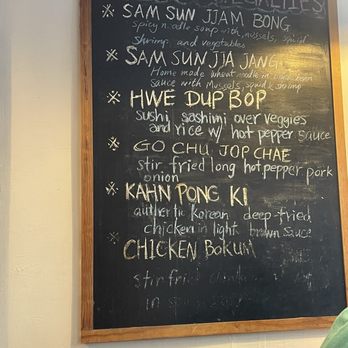 SPECIALTIES
※ SAM SUN JJAM BONG
spicy noodle soup with mussels, squid
shrimp and vegetables
※ SAM SUN JJA JANG
Home made wheat noodle in black bean
sauce with mussels, squid & shrimp
※ HWE DUP BOP
sushi sashimi over veggies
and rice w/ hot pepper sauce
※ GO CHU JOP CHAE
stir fried long hot pepper pork
onion
※ KAHN PONG KI
authentic Korean deep-fried
chicken in light brown sauce
※ CHICKEN BOKUM
stir fried
in